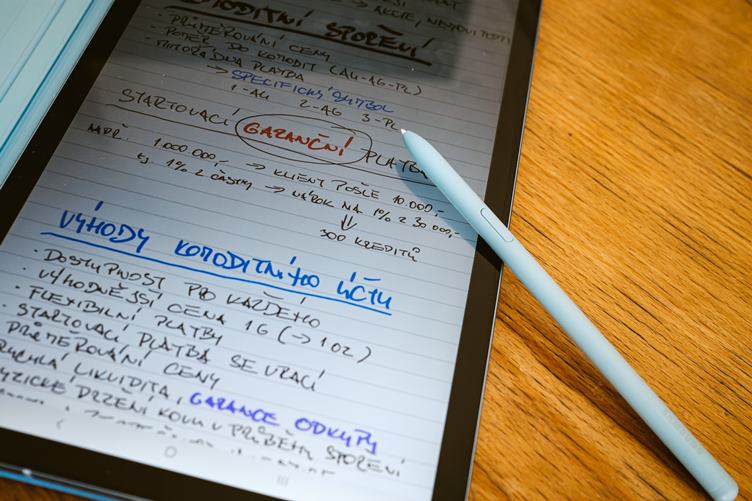 → AKCIE, NEMOVITOSTI
KOMODITNÍ SPOŘENÍ
· PRŮMĚROVÁNÍ CENY
· POMĚR DO KOMODIT (AU-AG-PL)
· MIMOŘÁDNÁ PLATBA
→ SPECIFICKÝ SYMBOL
1-AU 2-AG 3-PL
STARTOVACÍ GARANČNÍ PLATBA
NAPŘ. 1.000.000,- → KLIENT POŠLE 10.000,-
1% Z ČÁSTKY → NÁROK NA 1% Z 30.000,-
300 KREDITŮ
VÝHODY KOMODITNÍHO ÚČTU
· DOSTUPNOST PRO KAŽDÉHO
· VÝHODNĚJŠÍ CENA 1G (→ 1OZ)
· FLEXIBILNÍ PLATBY
· STARTOVACÍ PLATBA SE VRACÍ
PRŮMĚROVÁNÍ CENY
RYCHLÁ LIKVIDITA, GARANCE ODKUPU
FYZICKÉ DRŽENÍ KOVU V PRŮBĚHU SPOŘENÍ
SAMSUNG